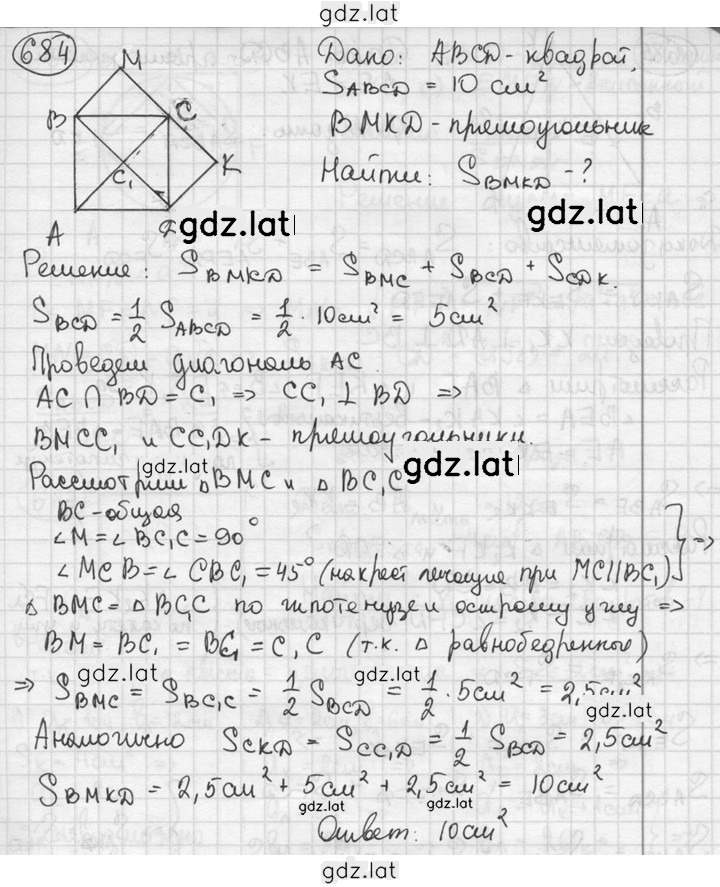 gdz.latl
684
M
B
C
K
C₁
A
Д
Дано: ABCD - квадрат,
S_ABCD = 10 см²
BMKD - прямоугольник
Найти: S_BMKD - ?
gdz.latl
gdz.latl
Решение: S_BMKD = S_BMC + S_BCD + S_CDK.
S_BCD = 1/2 S_ABCD = 1/2 · 10см² = 5см²
Проведем диагональ AC.
AC ∩ BD = C₁ => CC₁ ⊥ BD =>
BMCC₁ и CC₁DK - прямоугольники.
gdz.lat
gdz.latl
Рассмотрим △BMC и △BC₁C
BC - общая
∠M = ∠BC₁C = 90°
∠MCB = ∠CBC₁ = 45° (накрест лежащие при MC||BC₁) } =>
△BMC = △BC₁C по гипотенузе и острому углу =>
BM = BC₁ = BC₁ = C₁C (т.к. △ равнобедренные)
gdz.lat
=> S_BMC = S_BC₁C = 1/2 S_BCD = 1/2 · 5см² = 2,5см²
gdz.lat
Аналогично S_CKD = S_CC₁D = 1/2 S_BCD = 2,5см²
S_BMKD = 2,5см² + 5см² + 2,5см² = 10см²
gdz.lat
gdz.lat
Ответ: 10см²
gdz.lat